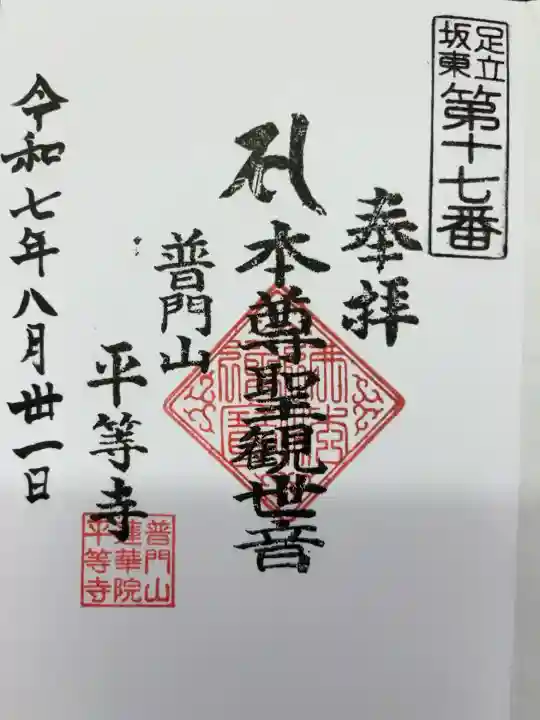 足立
坂東
第十七番
奉拝
本尊聖観世音
普門山
平等寺
普門山
蓮華院
平等寺
令和七年八月丗一日